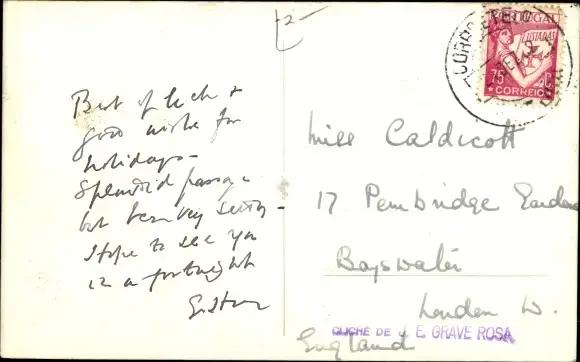 -2-
PORTUGAL
LUSIADAS
75 C.
CORREIO
CORREIO E TELE
Best of luck &
good wishes for
holidays -
Splendid passage
but
I hope to see you
in a fortnight
Miss Caldicott
17 Pembridge Gardens
Bayswater
London W.
England
CLICHÉ DE J. E. GRAVE ROSA